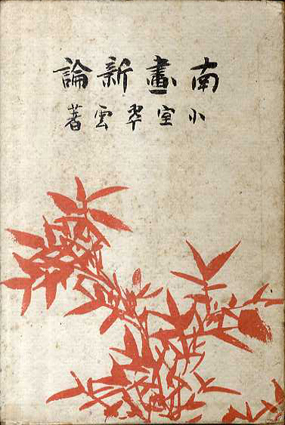 南畫新論
小室翠雲著